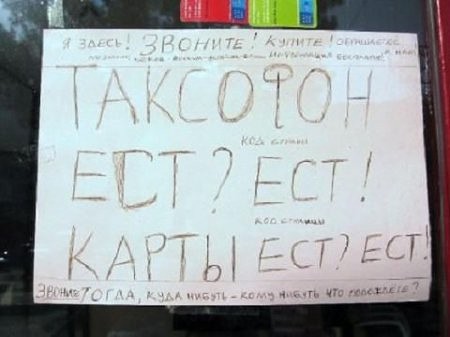 Я ЗДЕСЬ! ЗВОНИТЕ! КУПИТЕ! ОБРАЩАЕТЕС К НАМ
ИНФОРМАЦИЯ БЕСПЛАТНО
ТАКСОФОН
КОД СТРАНЫ
ЕСТ? ЕСТ!
КОД СТОЛИЦЫ
КАРТЫ ЕСТ? ЕСТ!
ЗВОНИТЕ ТОГДА, КУДА НИБУТЬ - КОМУ НИБУТЬ ЧТО ПОДОЖДЁТЕ?